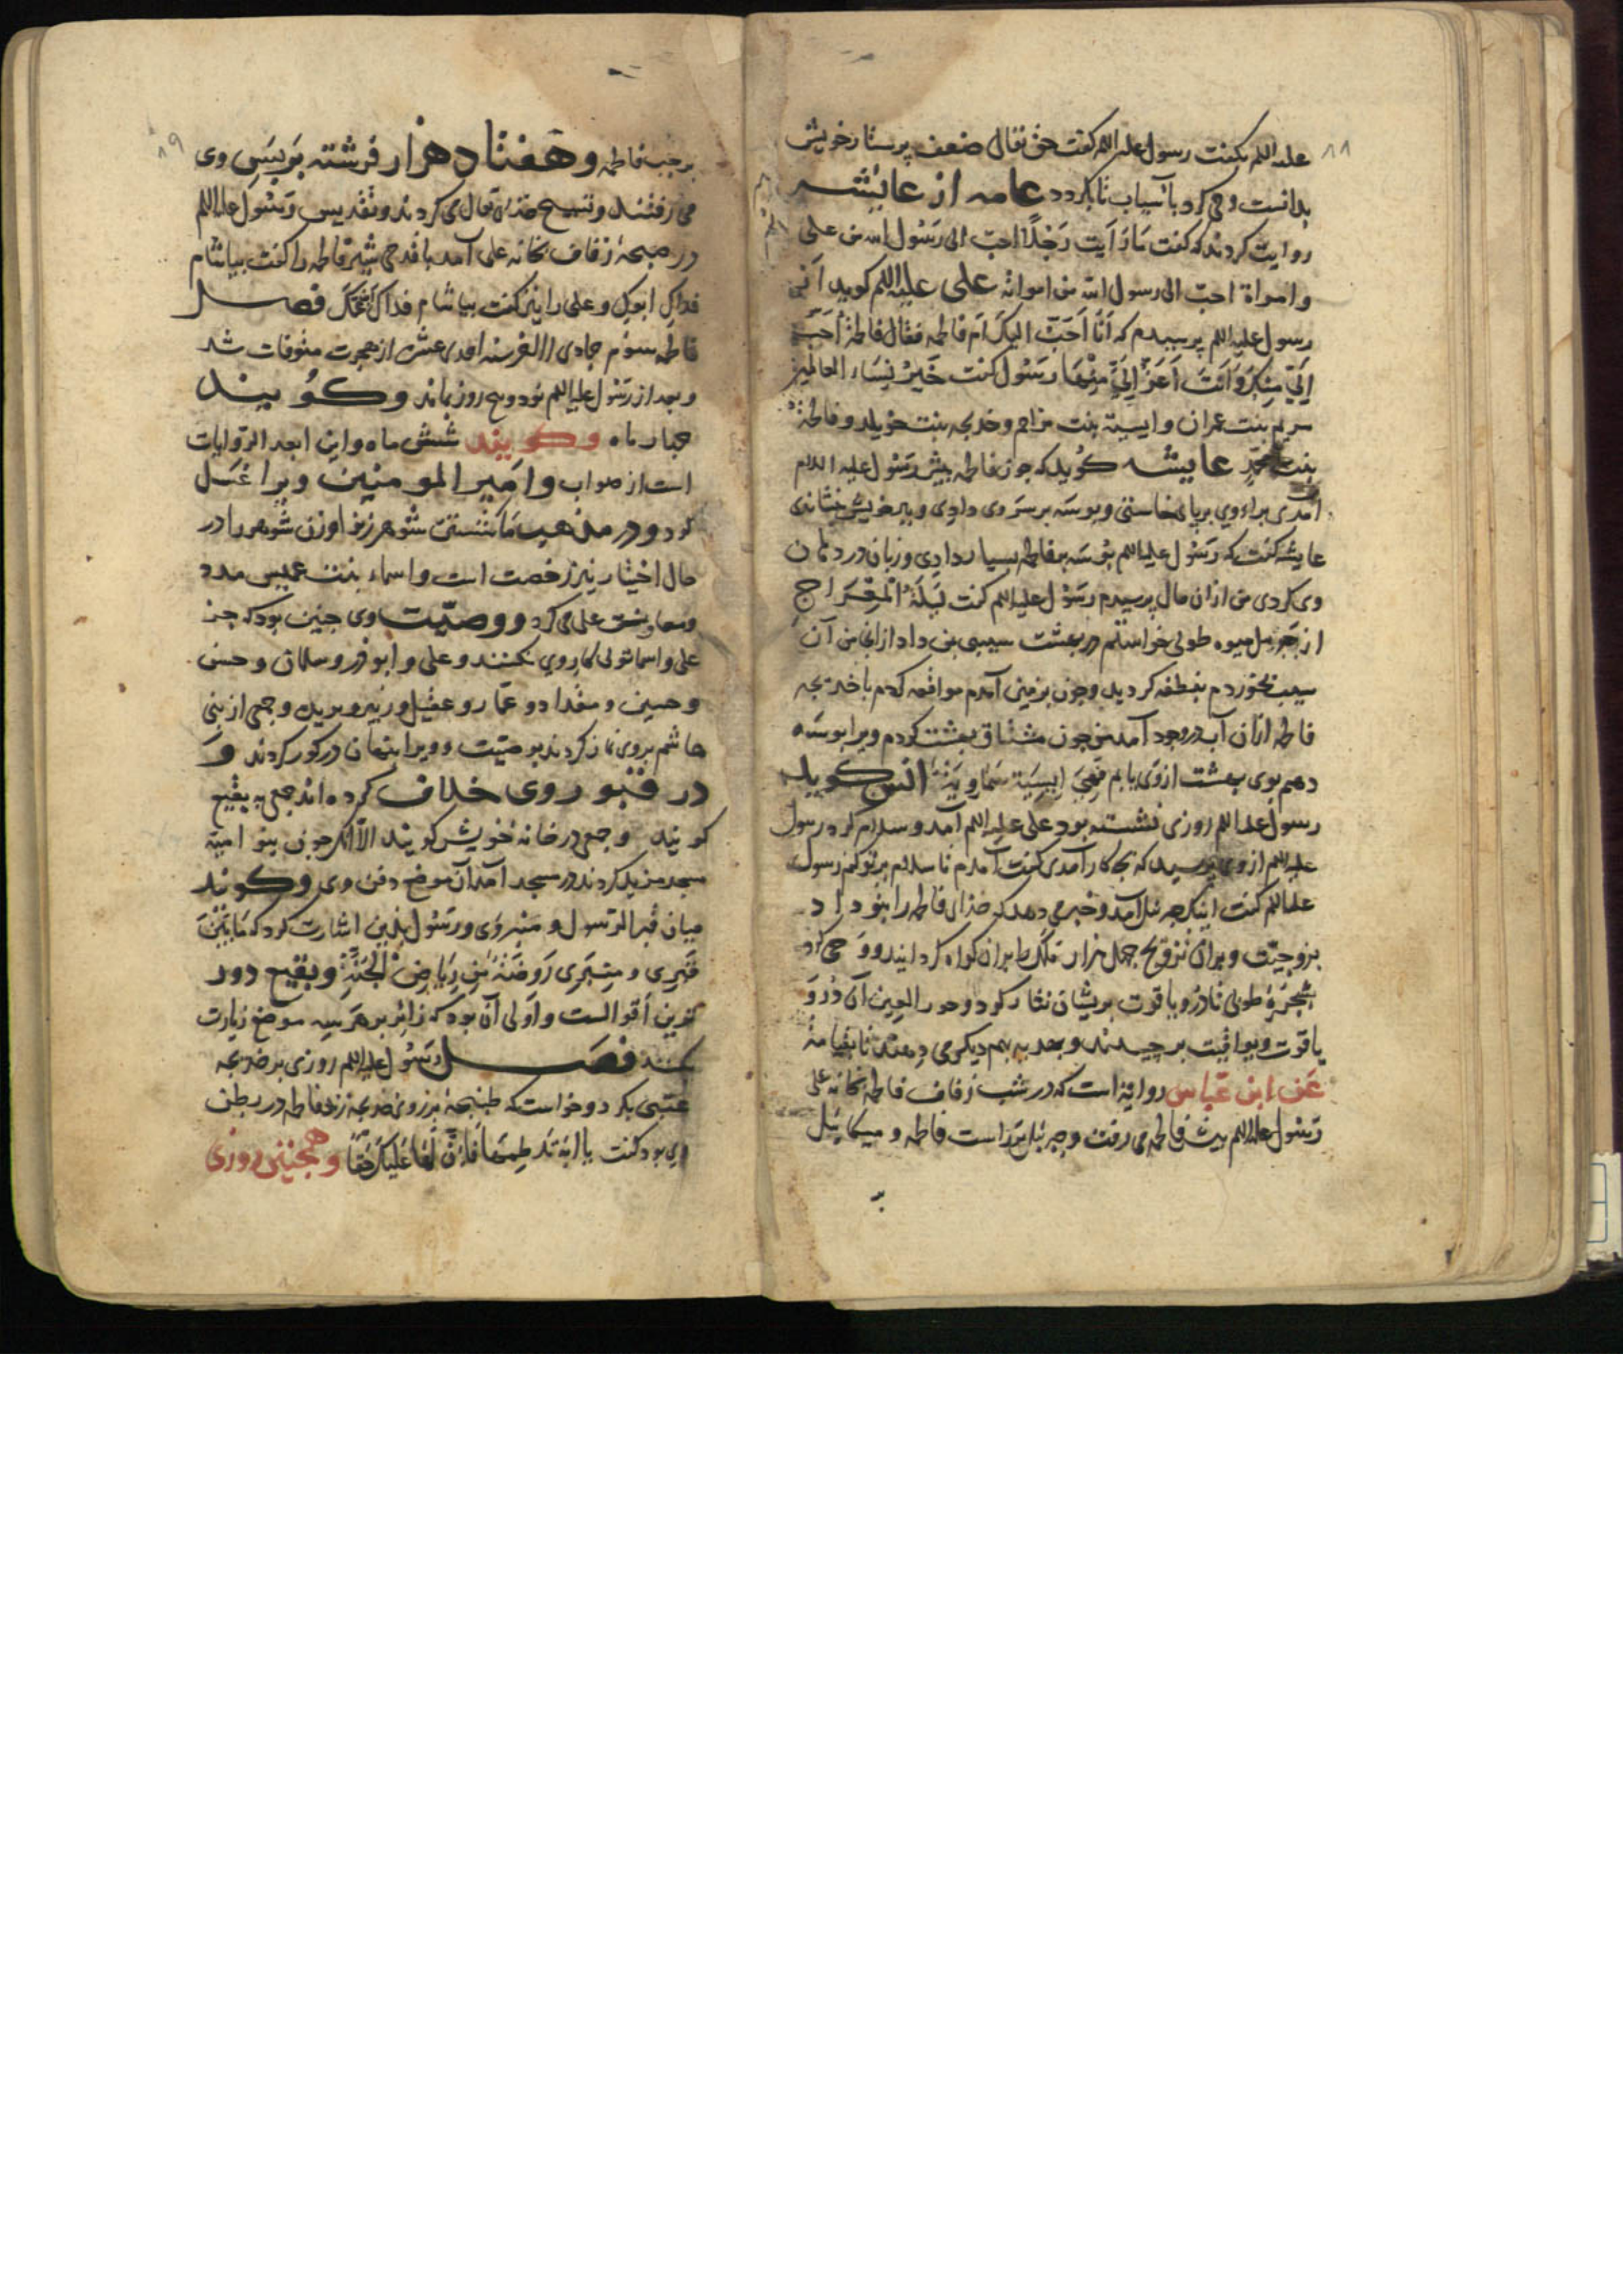 ۸۸
علیه السلم بگفت رسول علیه السلم گفت حق تعالی ضعف پرستار خویش
بدانست وحی کرد باسیاب تا بگردد عامه از عایشه
روایت کردند که گفت مَا رَاَیت رَجُلاً احبّ الی رَسُول الله من علی
وامراة احبّ الی رسول الله من امراته علی علیه السلم کوید اَنی
رسول علیه السلم پرسیدم که اَنَا اَحَبّ الیکَ اَم فاطمه فقال فاطمة اَحَبّ
اِلَیّ مِنکَ وَاَنتَ اَعَزّ اِلَیّ مِنْهَا رسُول گفت خَیرُ نِسَاء العالمین
مریم بنت عمران واسیة بنت مزاحم وخدیجه بنت خویلد وفاطمة
بنت محمّد عایشه کوید که چون فاطمه پیش رسول علیه السلام
آمدی براء وی بر پای خاستی وبوسَه بر سَر وی دادی وبر خویش نشاندی
عایشه گفت که رسُول علیه السلم بُوسَه بر فاطمه بسیار دادِی وزبان در دهان
وی کردی من ازان حال پرسیدم رسُول علیه السلم گفت لَیلَةُ المِعرَاج
از جبرئیل میوه طوبی خواستم در بهشت سیبی بمن داد ازان من آن
سیب بخوردم بنطفه کردید وچون بزمین آمدم مواقعه کردم با خدیجه
فاطمه ازان آب در وجود آمد من چون مشتاق بهشت کردم ویرا بوسَه
دهم بوی بهشت ازوی یابم فَهِیَ اِنسِیَّة سَمَاوِیَّةٌ انس کوید
رسول علیه السلم روزی نشسته بود علی علیه السلم آمد وسلام کرد رسول
علیه السلم از وی پرسید که بچه کار آمدی گفت آمدم تا سلام بر تو کنم رسول
علیه السلم گفت اینک جبرئیل آمد وخبر می دهد که خذای فاطمه را بتو داد
بزوجیّت وبران تزویج چهل هزار ملک را بران کواه کردانید ووحی کرد
بشجرَهٔ طوبی تا دُرّ ویاقوت بریشان نثار کرد وحور العین آن دُرّ وَ
یاقوت ویواقیت برچیدند وبهدیه بهم دیکر می دهند تا بقیامة
عَن ابن عبّاس روایة است که در شب زفاف فاطمه بخانه علی
رسُول علیه السلم پیش فاطمه می رفت وجبرئیل بَر راست فاطمه ومیکائیل
۸۹
بر چپ فاطمه وهفتاد هزار فرشته بر پسِ وی
می رفتند وتسبیح خذای تعالی می کردند وتقدیس ورسُول علیه السلم
در صبحهٔ زفاف بخانه علی آمد با قدحی شیر فاطمه را گفت بیاشام
فداکِ ابوکِ وعلی را نیز گفت بیاشام فداک ابن عمّک فصل
فاطمه سوم جمادی الاخر سنه احدی عشر از هجرت متوفات شد
وبعد از رسُول علیه السلم نود وپنج روز بماند وکویند
چهار ماه وکویند شش ماه واین ابعد الروایات
است از صواب وامَیر المومنین ویرا غسل
کرد ودر مذهب ما شستن شوهر زن را وزن شوهر را در
حال اختیار نیز رخصت است واسماء بنت عمیس مدد
ومعاونت علی می کرد ووصیّت وی چنین بود که جز
علی واسما تولی کار وی نکنند وعلی وابوذر وسلمان وحسن
وحسین ومقداد وعمّار وعقیل وزبیر وبریده وجمعی از بنی
هاشم بر وی نماز کردند بوصیّت وویرا پنهان در کور کردند وَ
در قبر وی خلاف کرده اند جمعی به بقیع
کویند وجمعی در خانه خویش کویند الّا آنکه چون بنو امیّة
مسجد مزید کردند در مسجد آمد آن موضع دفن وی وکویند
میان قبر الرّسول ومنبر وی ورسُول بدین اشارت کرد که مَا بَیْنَ
قبری ومِنبَری رَوضَةٌ مِن رِیَاضِ الجَنّةِ وبقیع دور
ترین اَقوالست واَولی آن بود که زائر بر هر سه موضع زیارت
کند فصل رسُول علیه السلم روزی بر خدیجه
عتبی بکرد وخواست که طبنجهٔ بر روی خدیجه زند فاطمه در بطن
وی بود گفت یا ابَة لَا تَلطِمهَا فَاِنّ لَهَا عَلَیکَ حَقّاً وهمچنین روزی